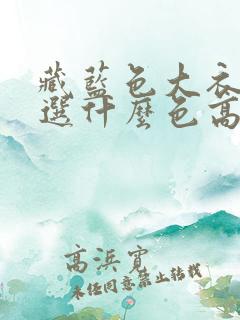 藏藍色大衣
選什麼色高
高浜寬
未經同意禁止轉載